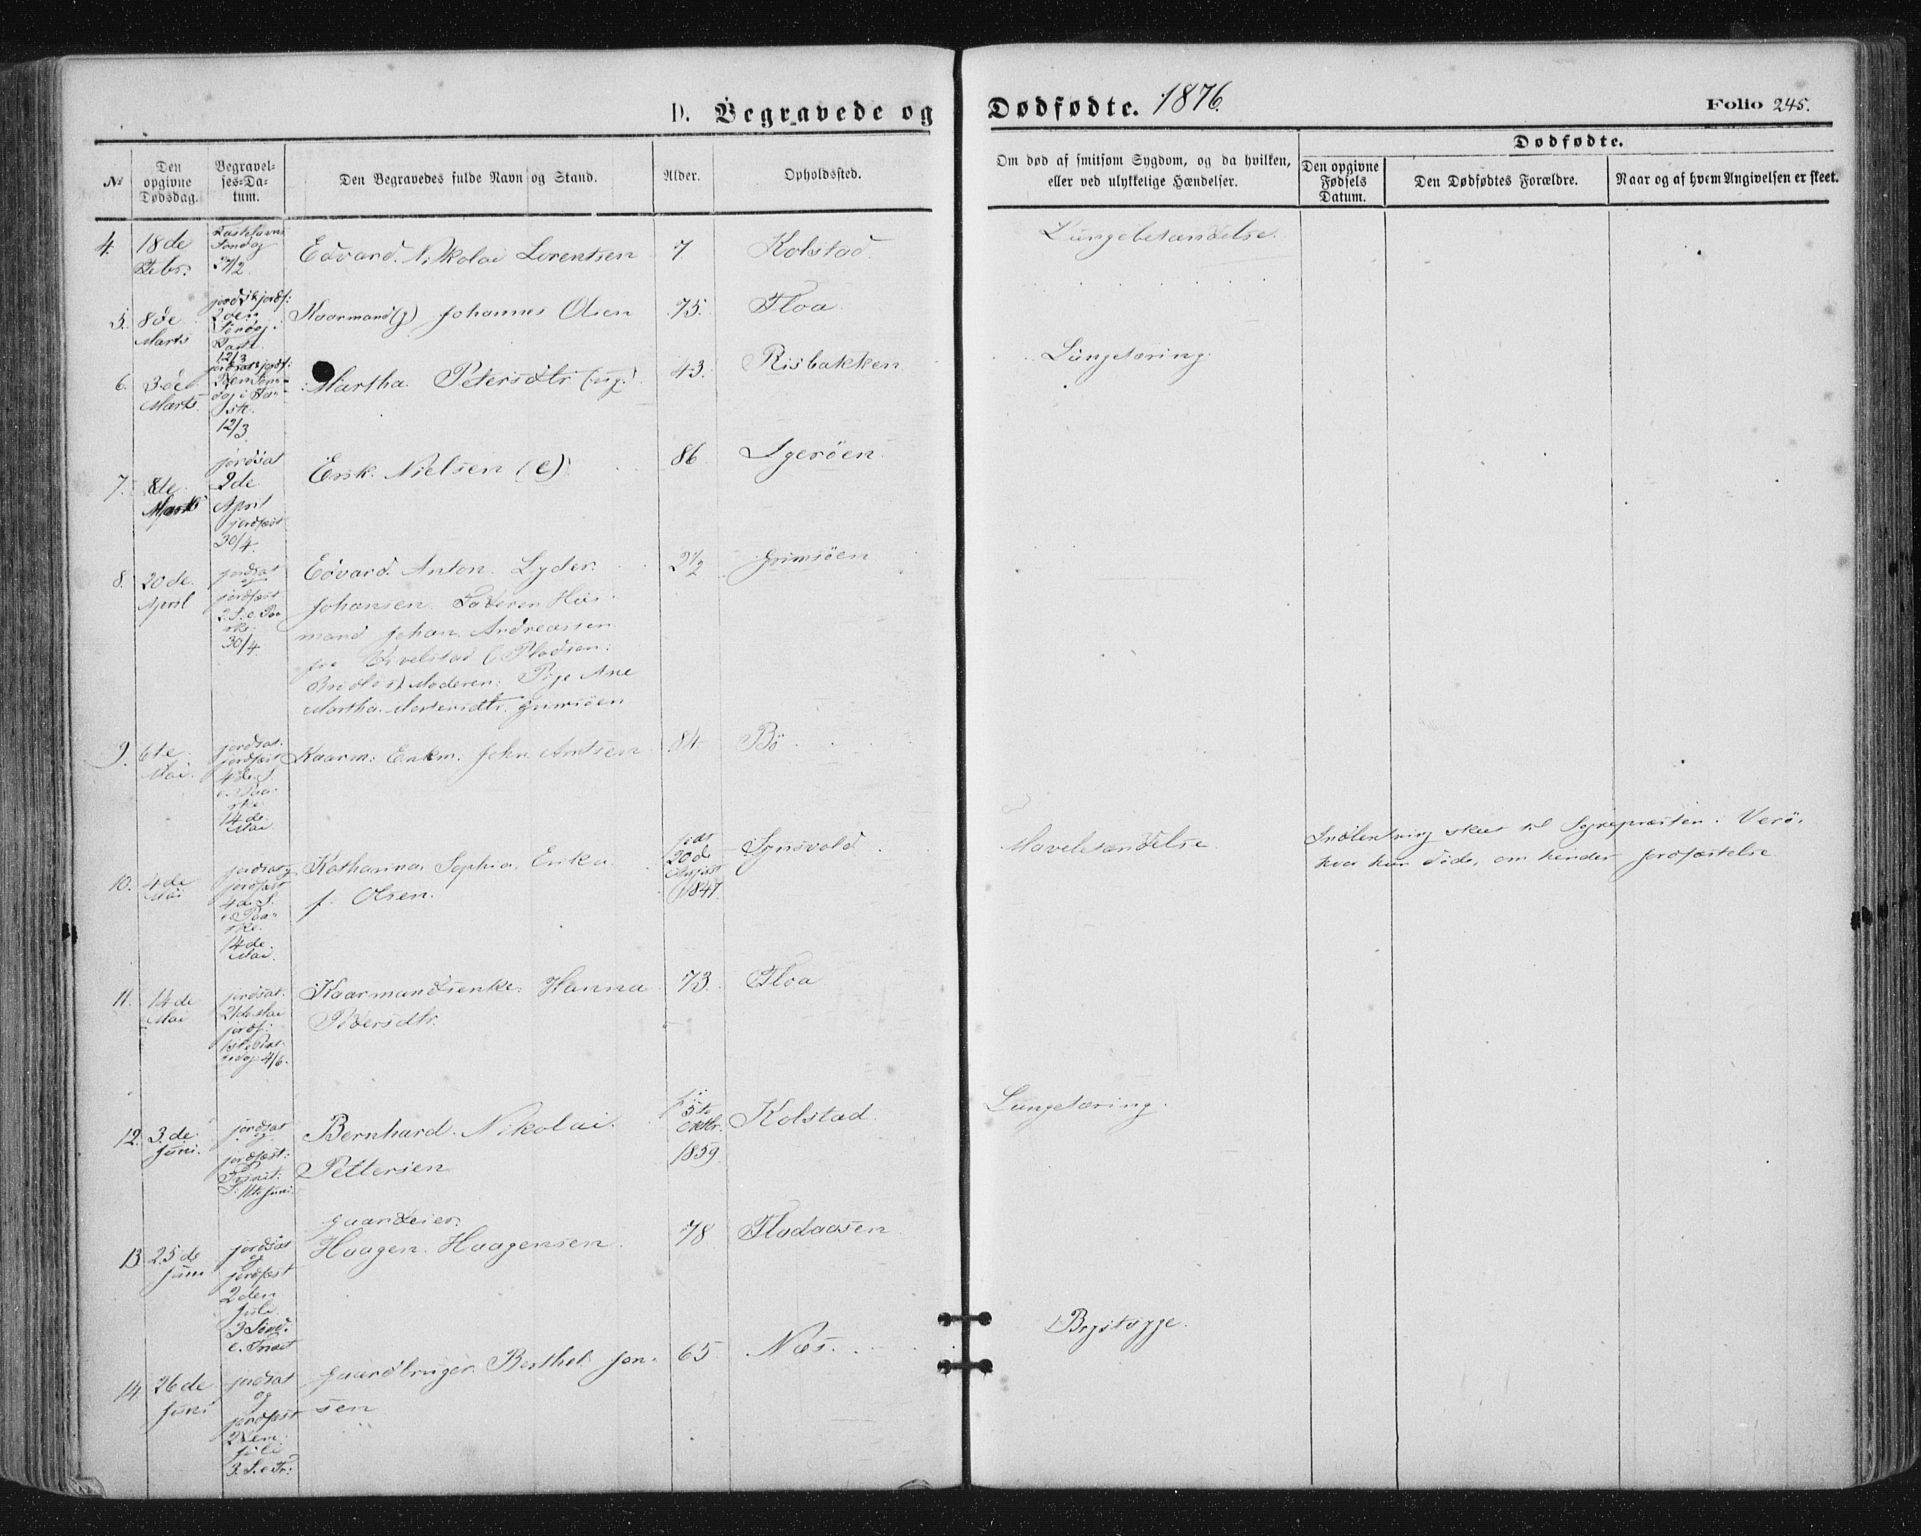 D. Begravede og Dødfødte. 1876.
Folio 245.
№
Den opgivne Dødsdag.
Begravelses-Datum.
Den Begravedes fulde Navn og Stand.
Alder.
Opholdssted.
Om død af smitsom Sygdom, og da hvilken, eller ved ulykkelige Hændelser.
Dødfødte.
Den opgivne Fødsels Datum.
Den Dødfødtes Forældre.
Naar og af hvem Angivelsen er skeet.
4. 18de Febr. Søndag 27/2. Edvard Nikolai Lorentsen 7 Kolstad. Lungebetændelse.
5. 8de Marts 12/3 Kaarmand (g) Johannes Olsen 75. Floa
6. 3de Marts. 12/3 Martha Petersdtr (ug.) 43. Risbakken Lungetæring.
7. 8de Marts jordsat 2de April jordfæst 30/4. Erik Nielsen (e) 86 Igerøen.
8. 20de April jordsat og jordfæst 2. S. e. Paaske 30/4 Edvard Anton Lyder 2 1/2 Grimsøen
Johansen. Faderen Huusmand Johan Andreassen
fra (Pladsen:
Moderen: Pige Ane
Martha Mortensdtr. Grimsøen
9. 6te Mai. jordsat jordfæst 4de S. e. Paaske 14de Mai Kaarm: Enkm. John Antsen 84 Bö
10. 4de Mai jordsat jordfæst 4de S. e. Paaske. 14de Mai. Katharina Sophia Erika f. Olsen. født 20de August 1847. Mavebetændelse.
Indberetning skeet til Sognepræsten i Verø,
hvor hun døde, om hendes Jordfæstelse
11. 14de Mai jordsat 21de Mai jordf: 1ste 4/6. Kaarmandsenke Hanna Pedersdtr. 73. Floa
12. 3de Juni. jordsat og jordfæst: Trinit. S. 11te Juni. Bernhard Nikolai Pettersen f. 5te Oktbr. 1859 Kolstad. Lungetæring.
13. 25de Juni jordsat og jordfæst 2den Juli. 3 Sønd. e. Trinit Gaardeier. Haagen Haagensen 78 Flodaasen
14. 26de Juni jordsat og jordfæst 2den Juli 3. S. e. Tr: Gaardbruger Berthel Jonsen 65 Næs. Brystsyge.